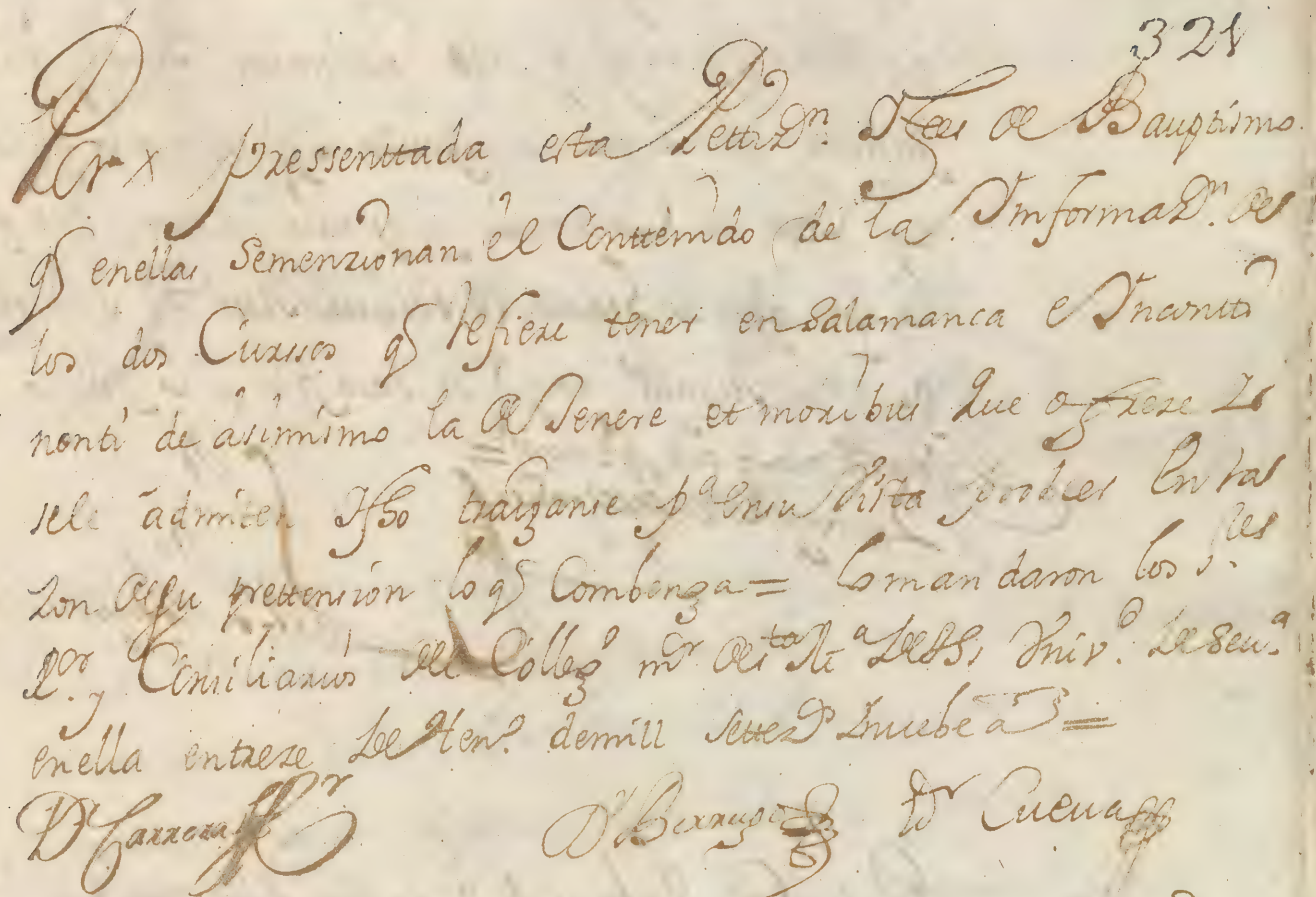 321
Por pressenttada esta Pettizn. Y fees de Bauptismo
q enellas semenzionan el Conttenido de la Ynformazn. de
los dos Curssos q refiere tener en Salamanca e Yncontti
nenti de asimismo la de Genere et moribus que ofreze
sele admiten Yfho traiganse pa ensu Vista Enrra
zon desu prettension lo q Combenga = lo mandaron los sres
Ror. y Consiliarios del Collego mor de sta Ma de Jhs Univ.d de Seva
enella entreze de Heno. demill settezs y nuebe as =
Dr Carrera Ror Dr Berrugo Dr Cueva